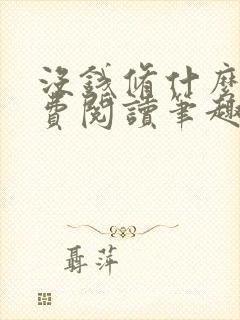 沒錢脩什麼
費閱讀筆趣
聶萍